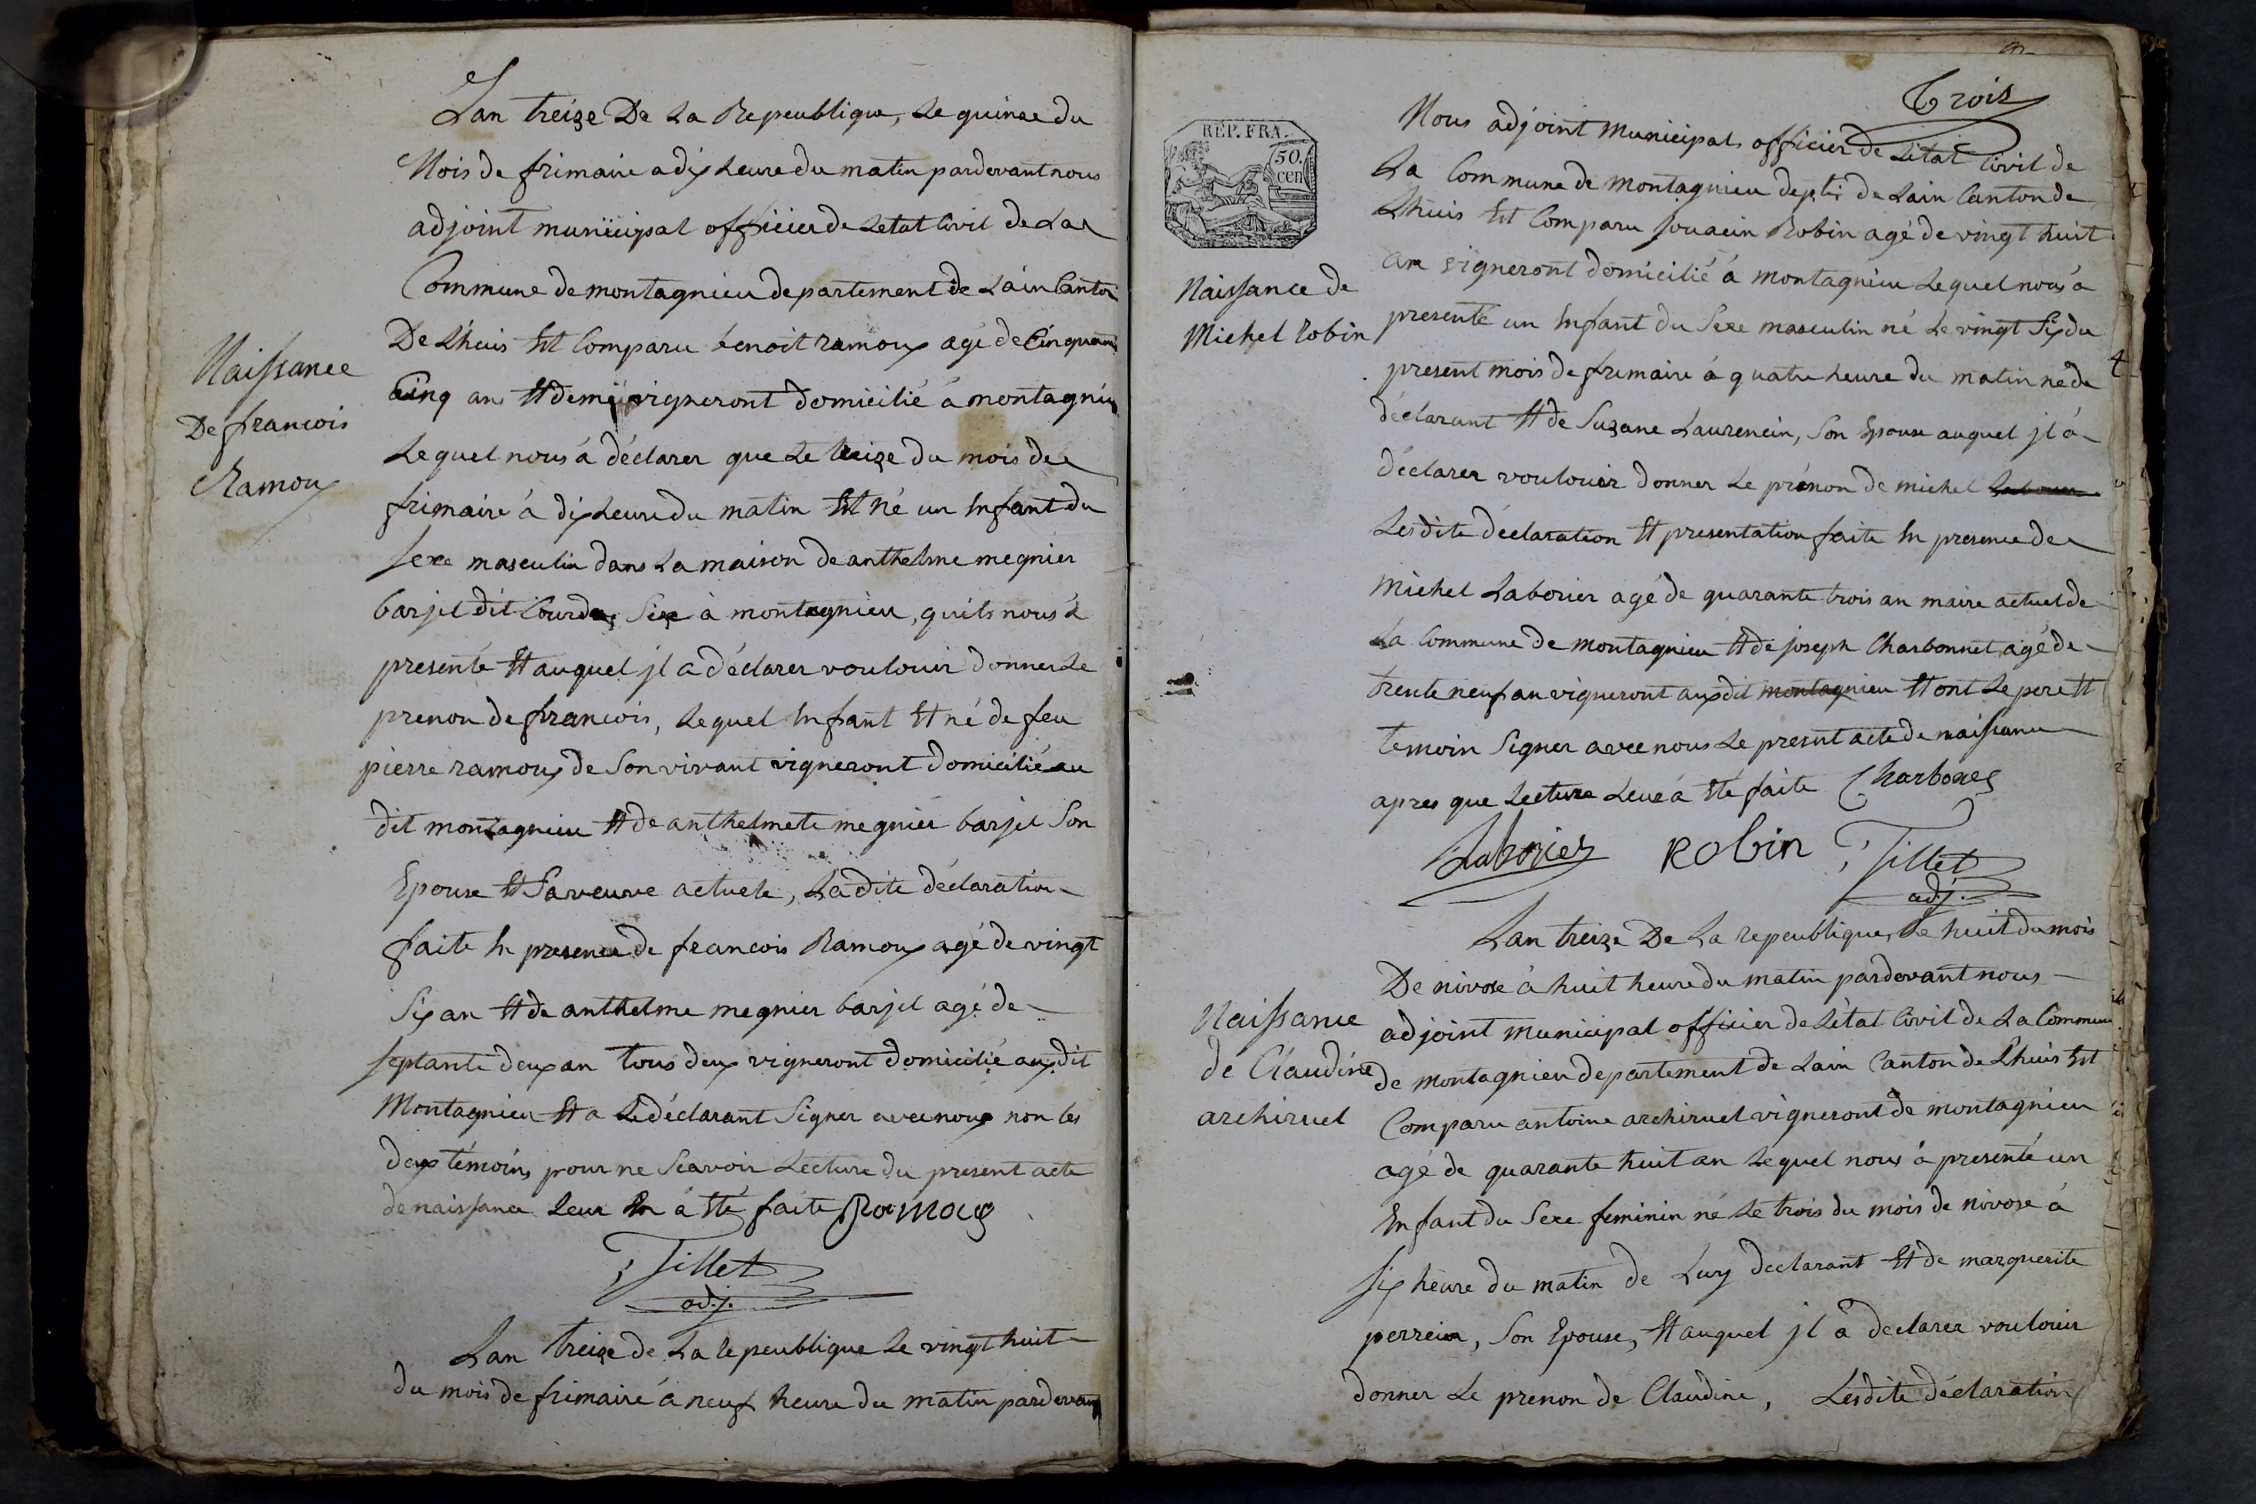 Lan treize De La Repeublique, Le quinze du
Mois de frimaire a dix heure du matin pardevant nous
adjoint municipal officier de Letat Civil de La
Commune de montagnieu departement de Lain Canton
De Lhuis Est Comparu benoit ramoux agé de Cinquante
Cinq ans Et demi vigneront domicilié á montagnieu
Lequel nous á déclarer que Le treize du mois de
frimaire á dix heure du matin Est né un Enfant du
Sexe masculin dans La maison de anthelme megnier
barjet dit Courde Size à montagnieu, quils nous á
presenté Et auquel jl a déclarer voulouir donner Le
prenon de francois, Lequel Enfant Et né de feu
pierre ramoux de Son vivant vigneront domicilié au
dit montagnieu Et de anthelmete megnier barjet Son
Epouse Et Sa veuve actuele, La dite déclaration
faite En presence de francois Ramoux agé de vingt
Six an Et de anthelme megnier barjet agé de
Septante deux an tous deux vigneront domicilié audit
Montagnieu Et a Le déclarant Signer avec nous non les
deux témoins pour ne Scavoir Lecture du present acte
de naissance Leur En á Eté faite Ramoux
Tillet
adj.
Lan treize de La repeublique Le vingt huit
du mois de frimaire á neuf heure du matin pardevant
Naissance
De francois
Ramoux
Trois
REP. FRA.
50.
cen
Nous adjoint municipal officier de Létat Civil de
La Commune de montagnieu dept. de Lain Canton de
Lhuis Est Comparu Robin agé de vingt huit
an vigneront domicilié á montagnieu Lequel nous á
presenté un Enfant du Sexe masculin né Le vingt Six du
present mois de frimaire á quatre heure du matin né de
déclarant Et de Suzane Laurencin, Son Epouse auquel jl á
déclarer voulouir donner Le prénon de michel
Lesdite déclaration Et presentation faite En presence de
Michel Laborier agé de quarante trois an maire actuel de
La Commune de montagnieu Et de joseph Charbonnet agé de
trente neuf an vigneront audit montagnieu Et ont Le pere Et
temoin Signer avec nous Le present acte de naissance
apres que Lecture Leur á Eté faite Charbonet
Laborier Robin Tillet
adj.
Naissance de
Michel Robin
Lan treize De La repeublique, Le huit du mois
De nivose á huit heure du matin pardevant nous
adjoint municipal officier de Létat Civil de La Commune
de montagnieu departement de Lain Canton de Lhuis Est
Comparu antoine archiruel vigneront de montagnieu
agé de quarante huit an Lequel nous á presenté un
Enfant du Sexe feminin né Le trois du mois de nivose á
Six heure du matin de Luy déclarant Et de marguerite
perrein, Son Epouse, Et auquel jl a déclarer voulouir
donner Le prenon de Claudine, Lesdite déclaration
Naissance
de Claudine
archiruel